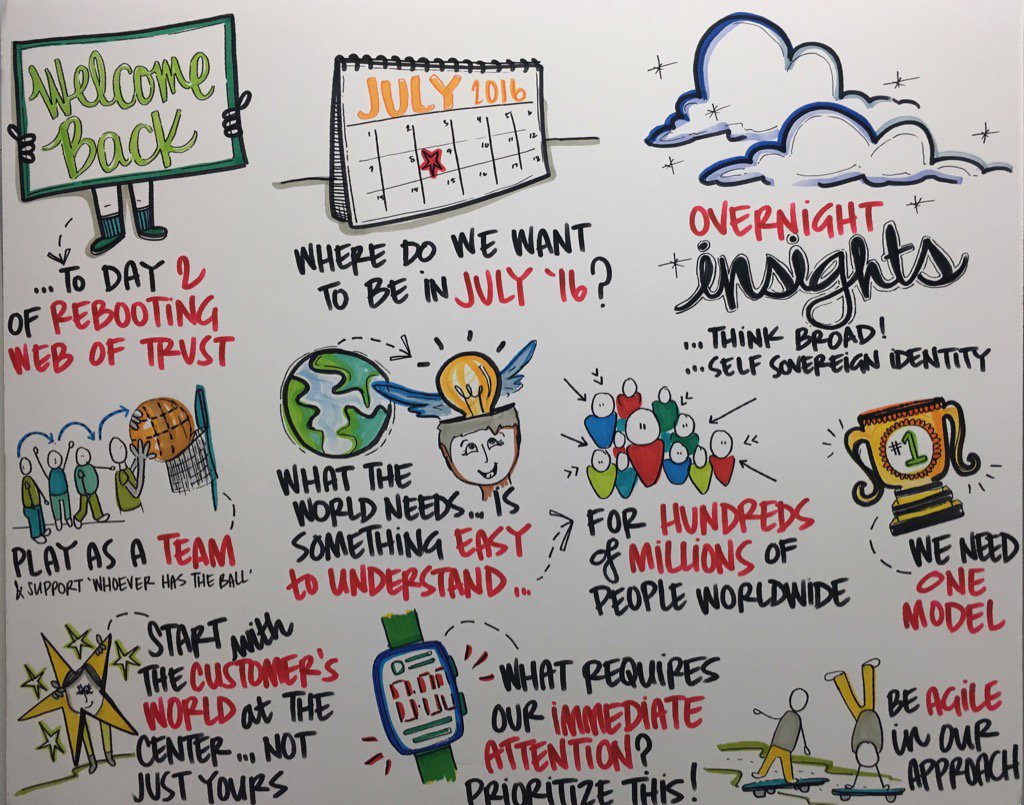 Welcome
Back
...TO DAY 2
OF REBOOTING
WEB OF TRUST
JULY 2016
WHERE DO WE WANT
TO BE IN JULY '16?
OVERNIGHT
insights
...THINK BROAD!
...SELF SOVEREIGN IDENTITY
PLAY AS A TEAM
& SUPPORT 'WHOEVER HAS THE BALL'
WHAT THE
WORLD NEEDS... IS
SOMETHING EASY
to UNDERSTAND...
FOR HUNDREDS
of MILLIONS OF
PEOPLE WORLDWIDE
#1
WE NEED
ONE
MODEL
START with
THE CUSTOMER'S
WORLD at THE
CENTER... NOT
JUST YOURS
WHAT REQUIRES
OUR IMMEDIATE
ATTENTION?
PRIORITIZE THIS!
BE AGILE
in OUR
APPROACH